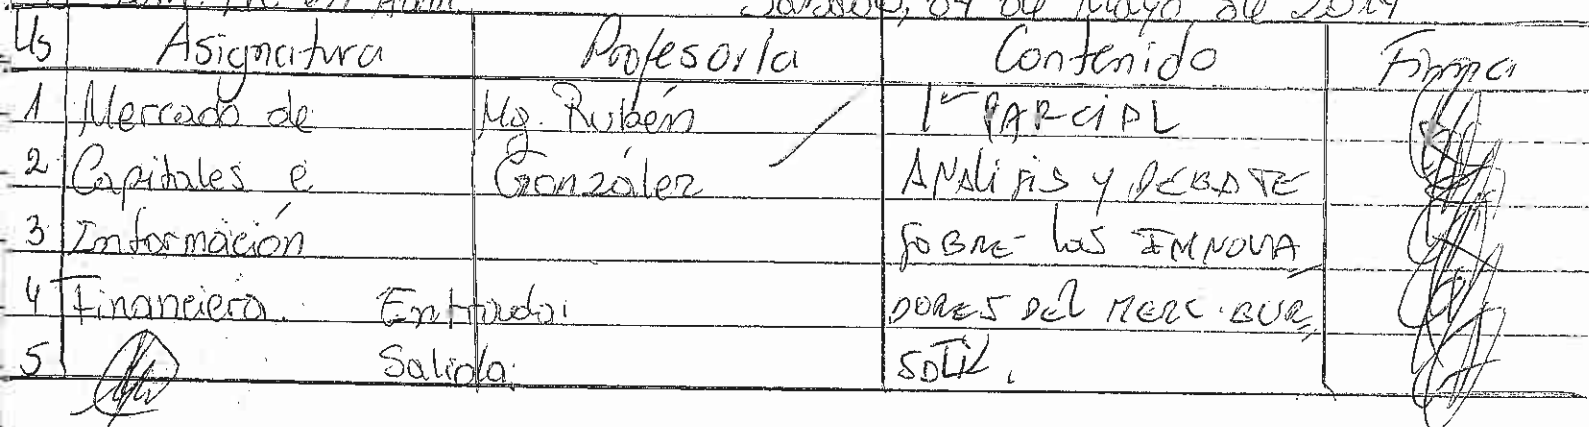 04 de Mayo de 2019
Hs Asignatura Profesor/a Contenido Firma
1 Mercado de Mg. Rubén 1er PARCIAL
2 Capitales e González ANALISIS Y DEBATE
3 Información SOBRE LOS INNOVA
4 Financiera. Entrada: DORES DEL MERC. BUR
5 Salida: SATIL.